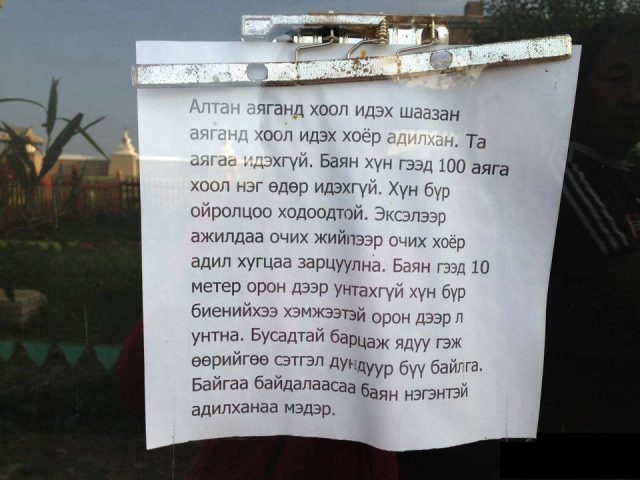 Алтан аяганд хоол идэх шаазан
аяганд хоол идэх хоёр адилхан. Та
аягаа идэхгүй. Баян хүн гээд 100 аяга
хоол нэг өдөр идэхгүй. Хүн бүр
ойролцоо ходоодтой. Эксэлээр
ажилдаа очих жийпээр очих хоёр
адил хугцаа зарцуулна. Баян гээд 10
метер орон дээр унтахгүй хүн бүр
биенийхээ хэмжээтэй орон дээр л
унтна. Бусадтай барцаж ядуу гэж
өөрийгөө сэтгэл дундуур бүү байлга.
Байгаа байдалаасаа баян нэгэнтэй
адилханаа мэдэр.